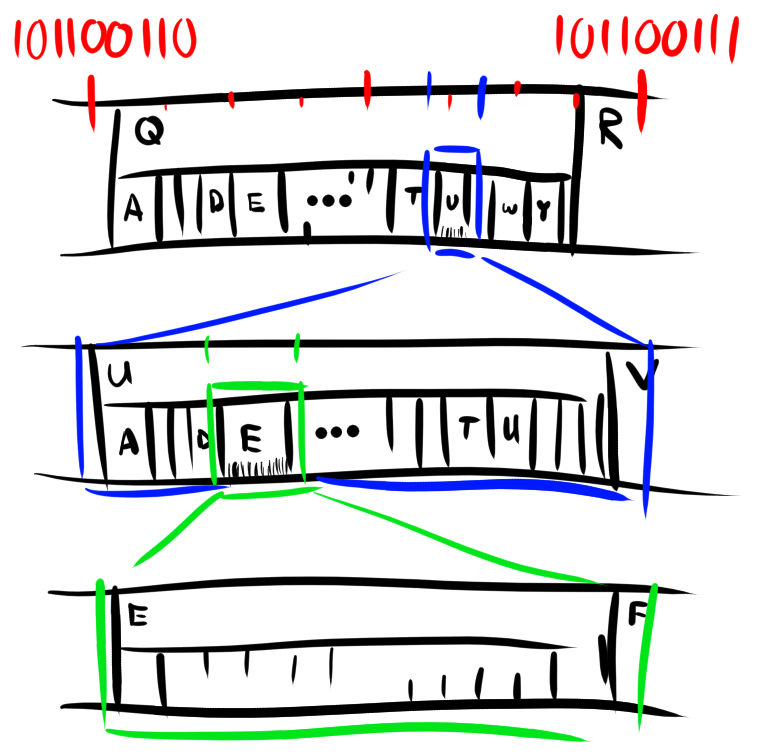 101100110 101100111
Q R
A D E ... T U W Y
U V
A D E ... T U
E F